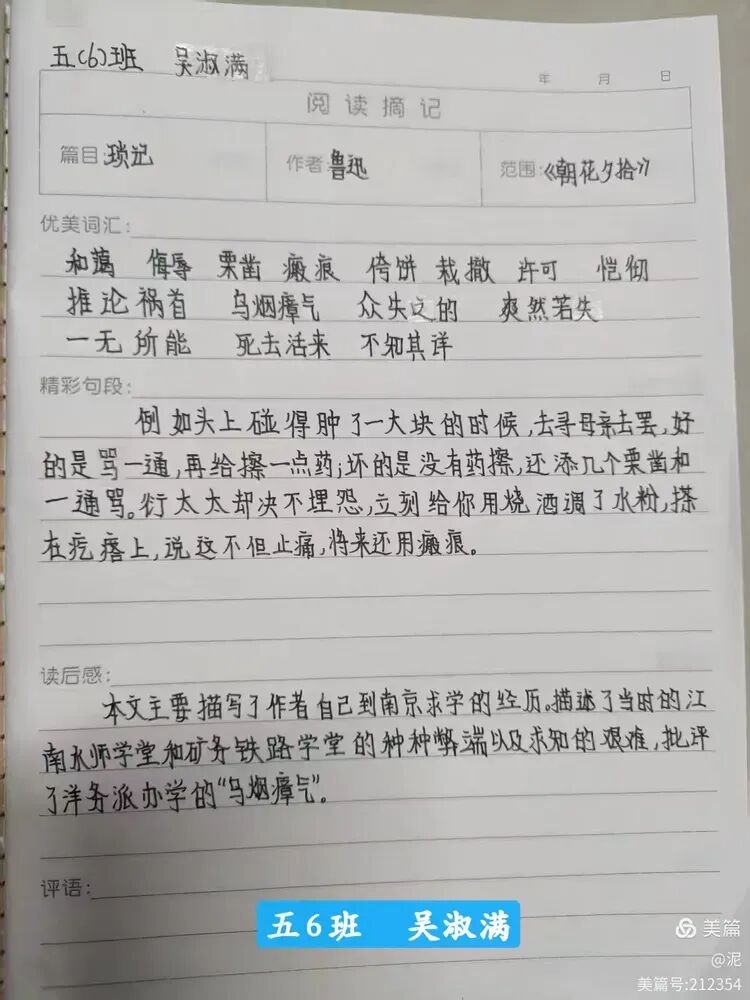 五(6)班 吴淑满
年 月 日
阅读摘记
篇目:琐记 作者:鲁迅 范围:《朝花夕拾》
优美词汇:
和蔼 侮辱 栗凿 瘢痕 侉饼 栽撒 许可 恺彻
推论祸首 乌烟瘴气 众矢之的 爽然若失
一无所能 死去活来 不知其详
精彩句段:
例如头上碰得肿了一大块的时候,去寻母亲去罢,好
的是骂一通,再给擦一点药;坏的是没有药擦,还添几个栗凿和
一通骂。衍太太却决不埋怨,立刻给你用烧酒调了水粉,搽
在疙瘩上,说这不但止痛,将来还用瘢痕。
读后感:
本文主要描写了作者自己到南京求学的经历。描述了当时的江
南水师学堂和矿务铁路学堂的种种弊端以及求知的艰难,批评
了洋务派办学的“乌烟瘴气”。
评语:
五6班 吴淑满
美篇
@泥
美篇号:212354